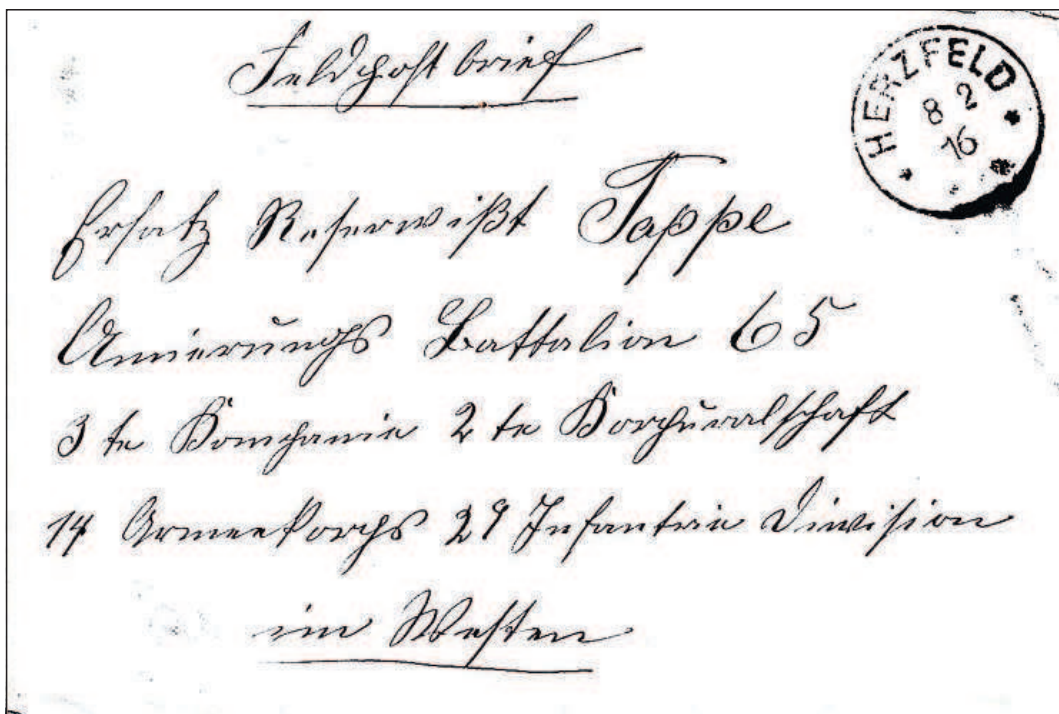 Feldpost brief
HERZFELD
8 2
16
Ersatz Reserwißt Tappe
Armierungs Battalion 65
3 te Kompanie 2 te Korpuralschaft
14 Armeekorps 29 Infantrie Diwision
im Westen